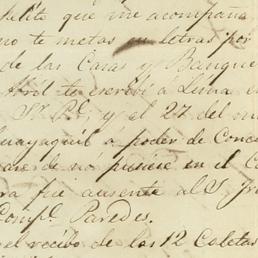 delito que me acompaña
no te metas en letras por
de las Casas y Banque
Abril te escribi á Lima
y el 27 del m
uayaquil á poder de Conc
de no pudiere en el C
ra fue ausente al S.
Comp.^e Paredes.
el recibo de los 12 Coletas